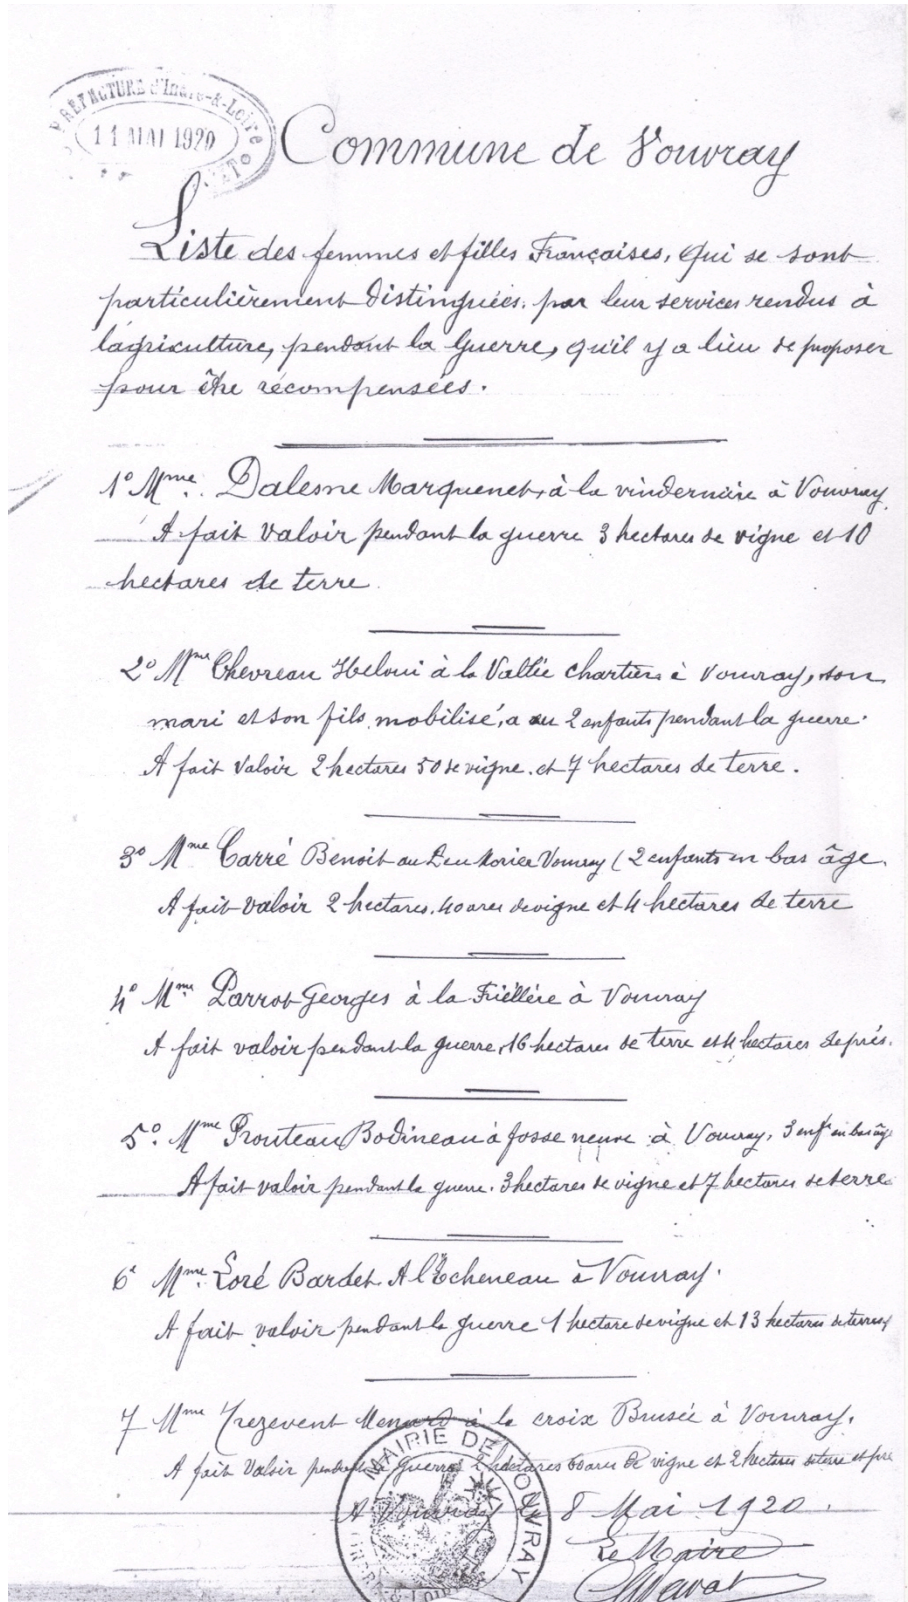 PRÉFECTURE d'Indre-&-Loire
11 MAI 1920
Commune de Vouvray
Liste des femmes et filles Françaises, qui se sont
particulièrement distinguées, par leur services rendus à
l'agriculture, pendant la Guerre, qu'il y a lieu de proposer
pour être récompensées.
1° Mme Dalesne Marquenet, à la à Vouvray
A fait valoir pendant la guerre 3 hectares de vigne et 10
hectares de terre
2° Mme Chevreau à la Vallée chartier à Vouvray, son
mari et son fils mobilisé, a eu 2 enfants pendant la guerre.
A fait valoir 2 hectares 50 de vigne. et 7 hectares de terre.
3° Mme Carré Benoit au Vouvray (2 enfants en bas âge
A fait valoir 2 hectares. 40 ares de vigne et 4 hectares de terre
4° Mme Parrot Georges à la à Vouvray
A fait valoir pendant la guerre, 16 hectares de terre et 4 hectares de prés.
5°. Mme Prouteau Bodineau à fosse neuve à Vouvray, 3 enfts en bas âge
A fait valoir pendant la guerre. 3 hectares de vigne et 7 hectares de terre
6° Mme Loré Bardet A l'Echeneau à Vouvray.
A fait valoir pendant la guerre 1 hectare de vigne et 13 hectares de terres
7 Mme Trezevent Menard à la croix Brisée à Vouvray.
A fait valoir pendant la guerre 2 hectares 60 ares de vigne et 2 hectares de terre et pré
A Vouvray le 8 Mai 1920.
MAIRIE DE VOUVRAY
INDRE-&-LOIRE
Le Maire